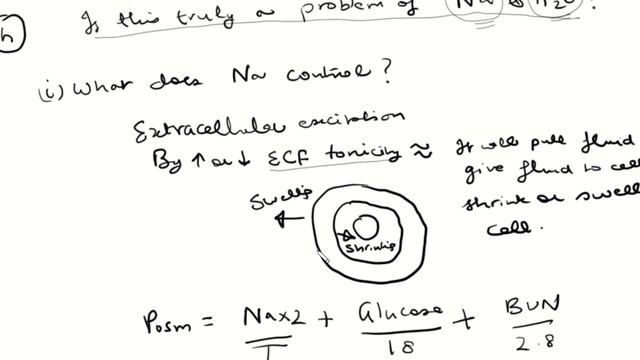 h
Is this truly a problem of Na & H2O ?
(i) What does Na control?
Extracellular
By ↑ or ↓ ECF tonicity ≈
It will pull fluid
give fluid to cell
shrink or swell
cell.
Swelling
Shrinking
Posm = Nax2 + Glucose + BUN
1 18 2.8